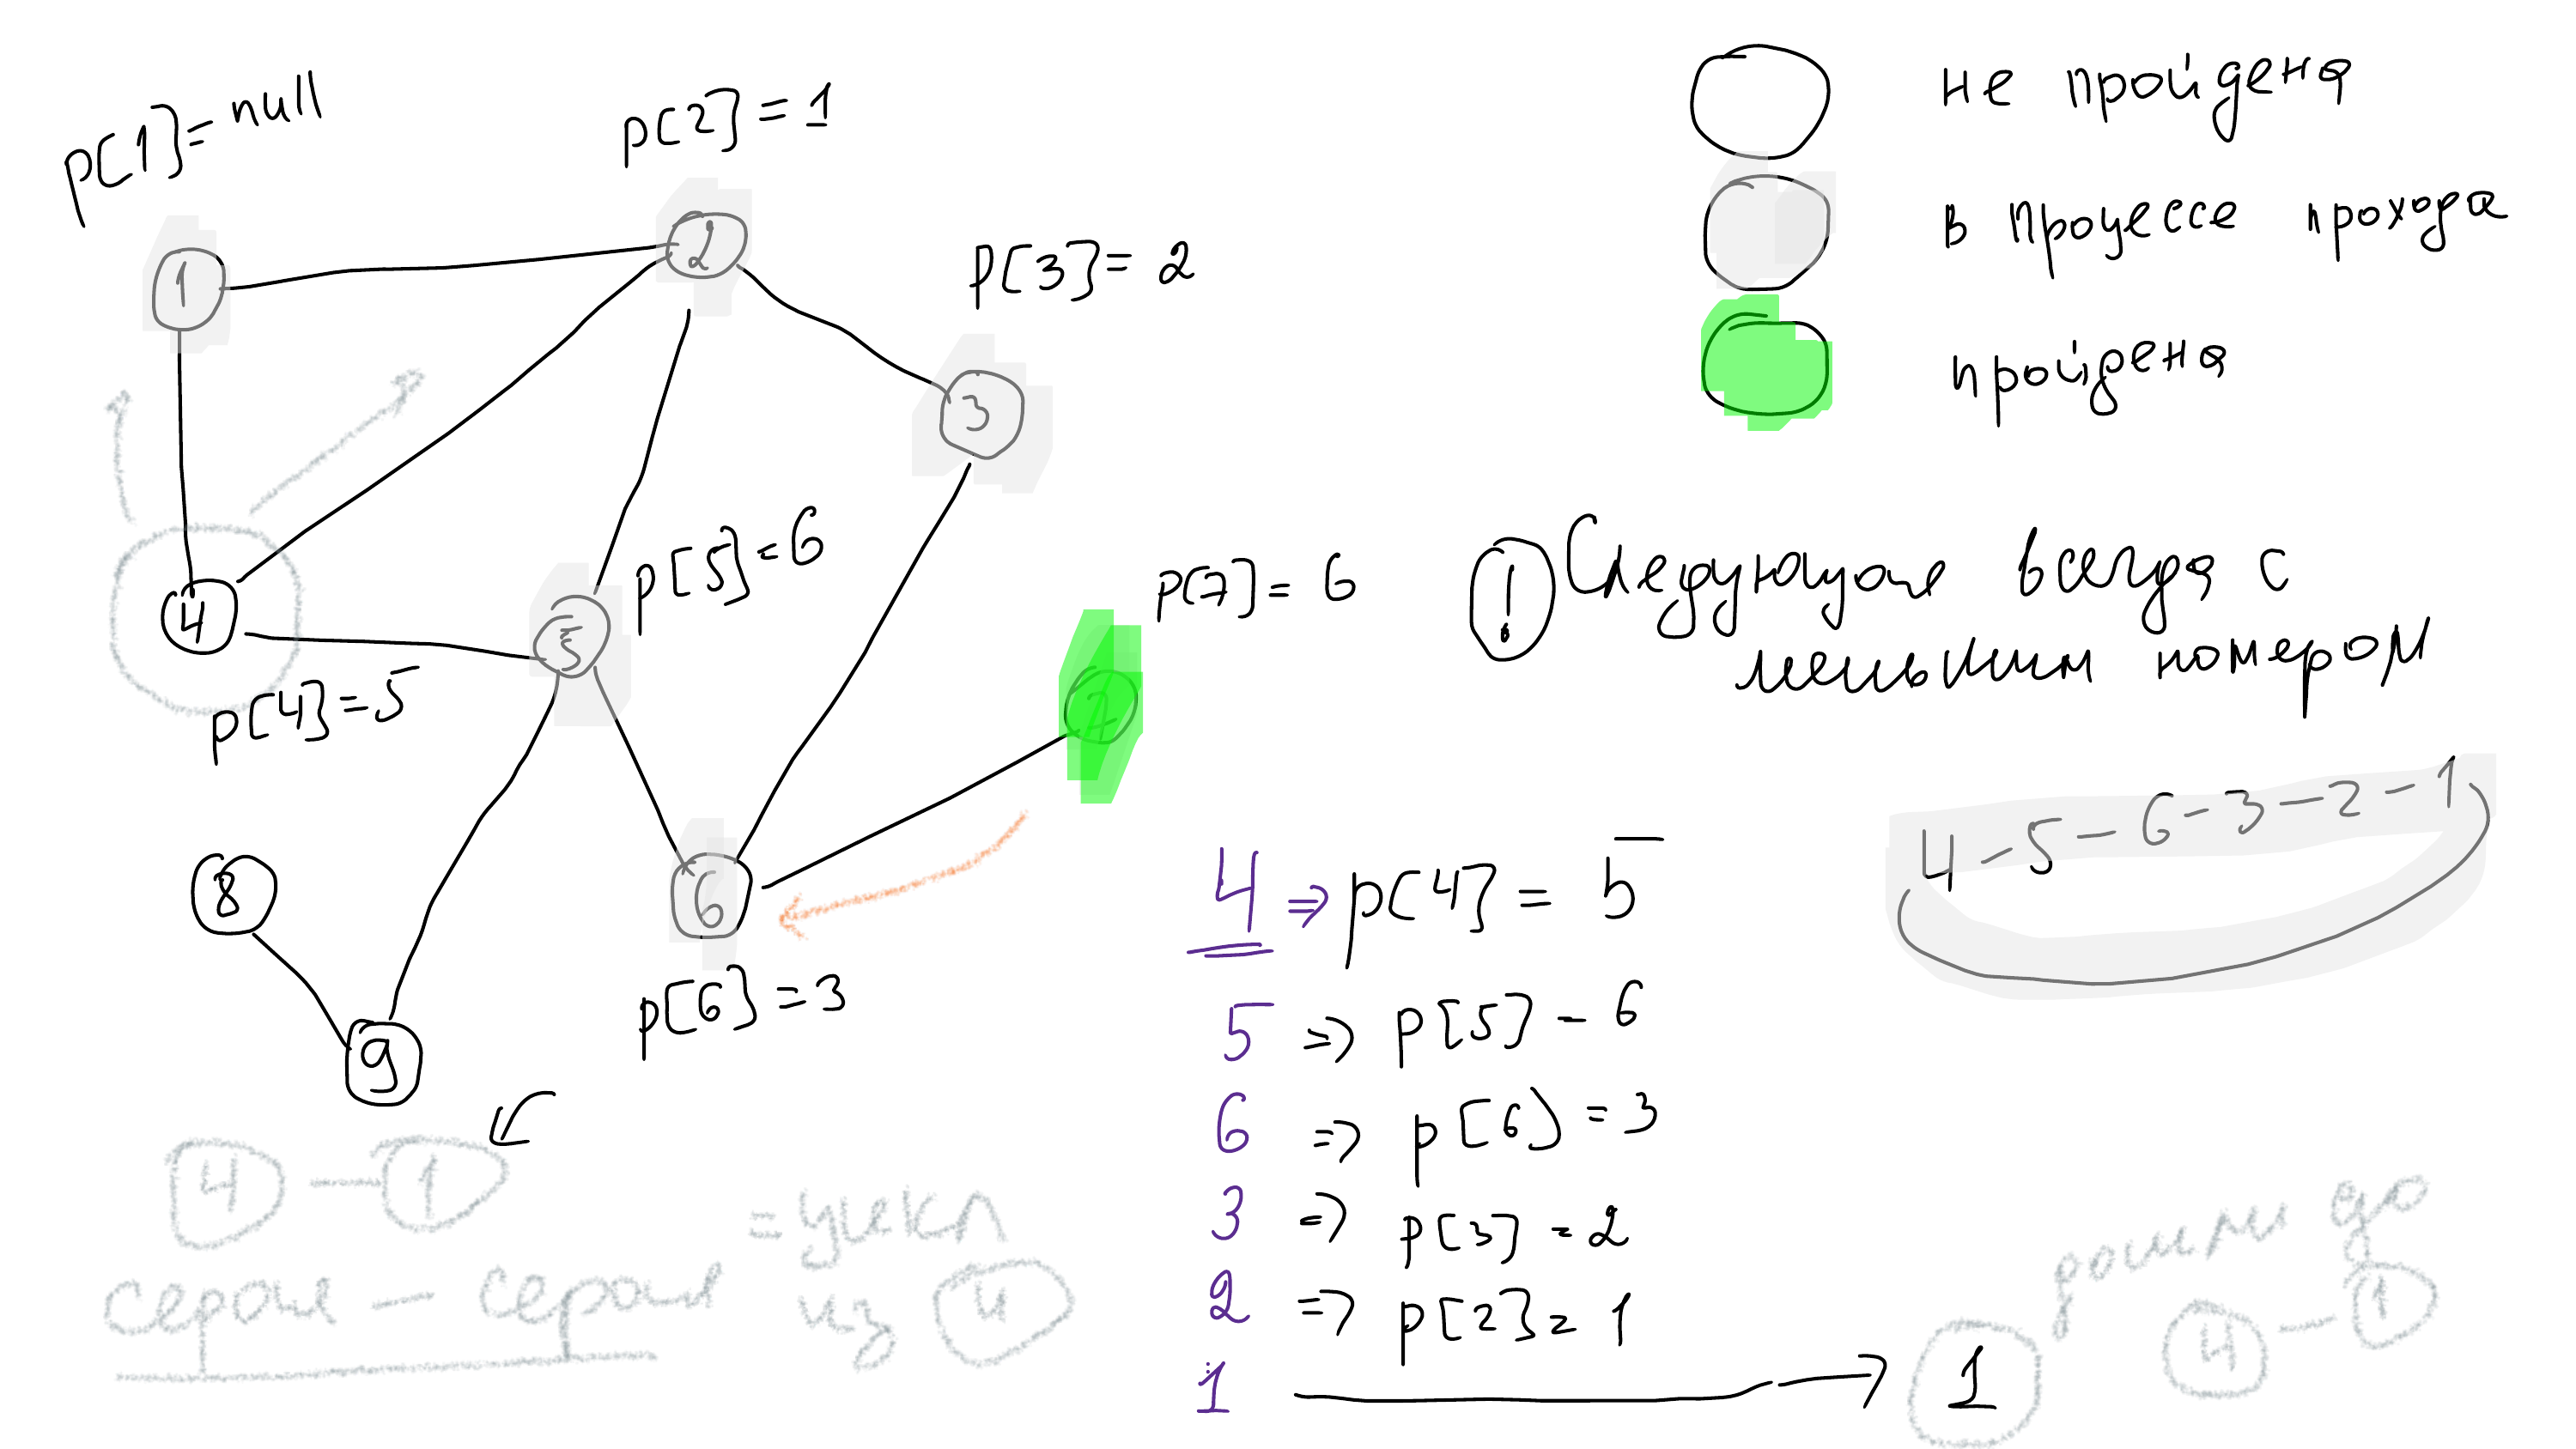 p[1]= null
p[2] = 1
p[3] = 2
1
2
3
4
5
6
7
8
9
p[5]=6
p[7]= 6
p[4]=5
p[6]=3
не пройдена
в процессе прохода
пройдена
! Следующая всегда с
меньшим номером
4 - 5 - 6 - 3 - 2 - 1
4 => p[4] = 5
5 => p[5] - 6
6 => p[6] = 3
3 => p[3] = 2
2 => p[2] = 1
1 → 1
4 — 1
серая — серая
= цикл
из 4
дошли до
4 - 1